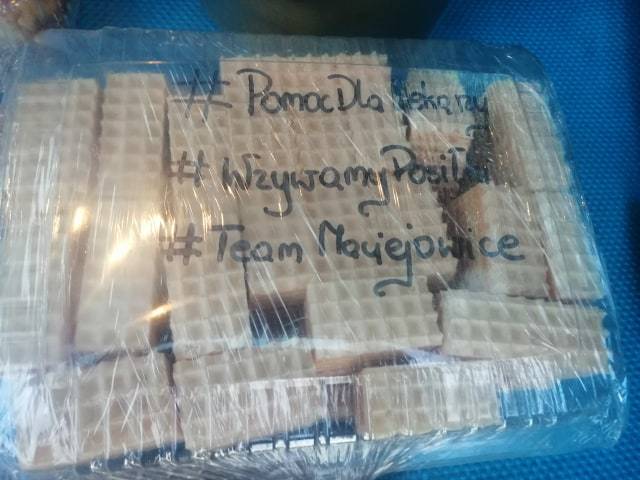 #PomocDlaLekarzy
#WzywamyPosiłki
#Team Maciejowice